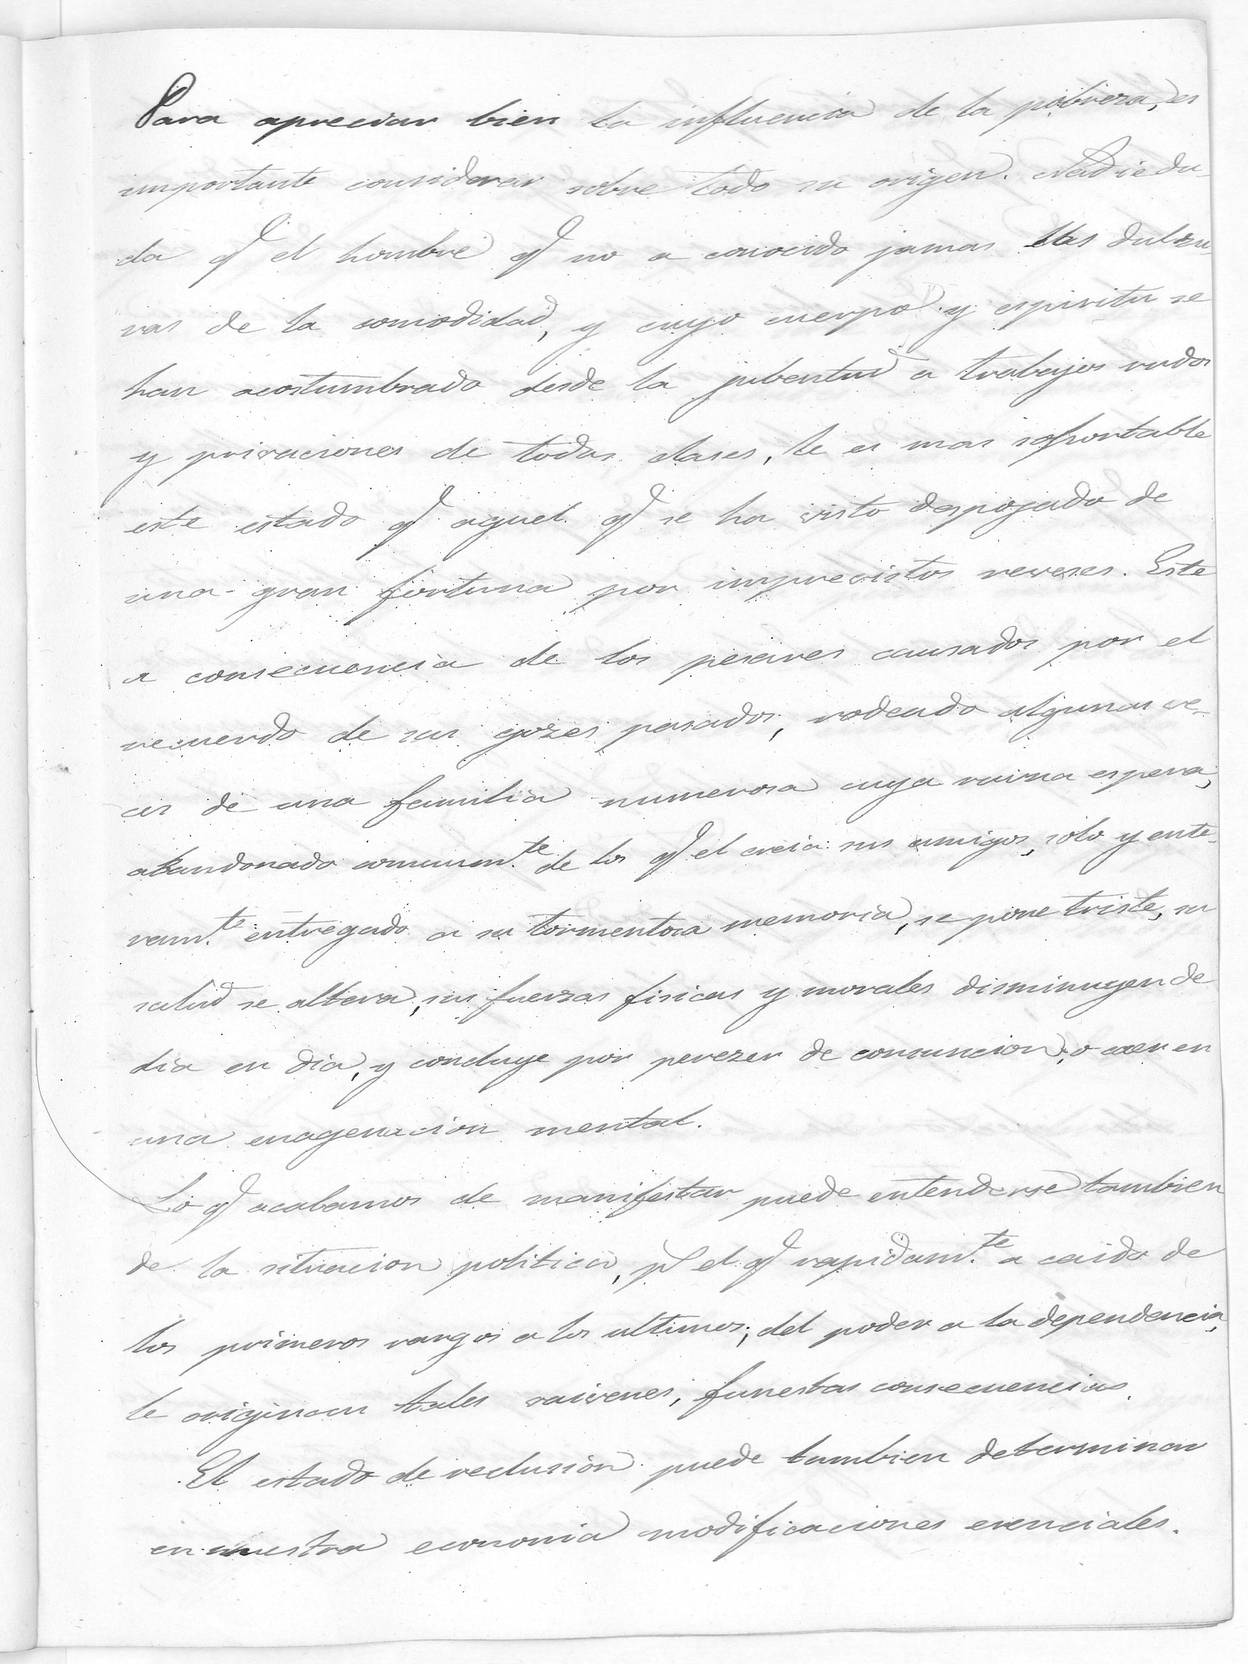 Para apreciar bien la influencia de la pobreza, es
importante considerar sobre todo su origen. Nadie du-
da q.e el hombre q.e no a conocido jamas las dulzu-
ras de la comodidad, y cuyo cuerpo y espiritu se
han acostumbrado desde la jubentud a trabajos rudos
y privaciones de todas clases, le es mas soportable
este estado q.e aquel q.e se ha visto despojado de
una gran fortuna por imprevistos reveses. Este
a consecuencia de los pesares causados por el
recuerdo de sus gozes pasados, rodeado algunas ve-
ces de una familia numerosa cuya ruina espera,
abandonado comunm.te de los q.e el creia sus amigos, solo y ente-
ram.te entregado a su tormentosa memoria, se pone triste, su
salud se altera, sus fuerzas fisicas y morales disminuyen de
dia en dia, y concluye por perezer de consuncion, o caer en
una enagenacion mental.
Lo q.e acabamos de manifestar puede entenderse tambien
de la situacion politica, p.a el q.e rapidam.te a caido de
los primeros rangos a los ultimos; del poder a la dependencia,
le originan tales vaivenes, funestas consecuencias.
El estado de reclusion puede tambien determinar
en nuestra economia modificaciones esenciales.